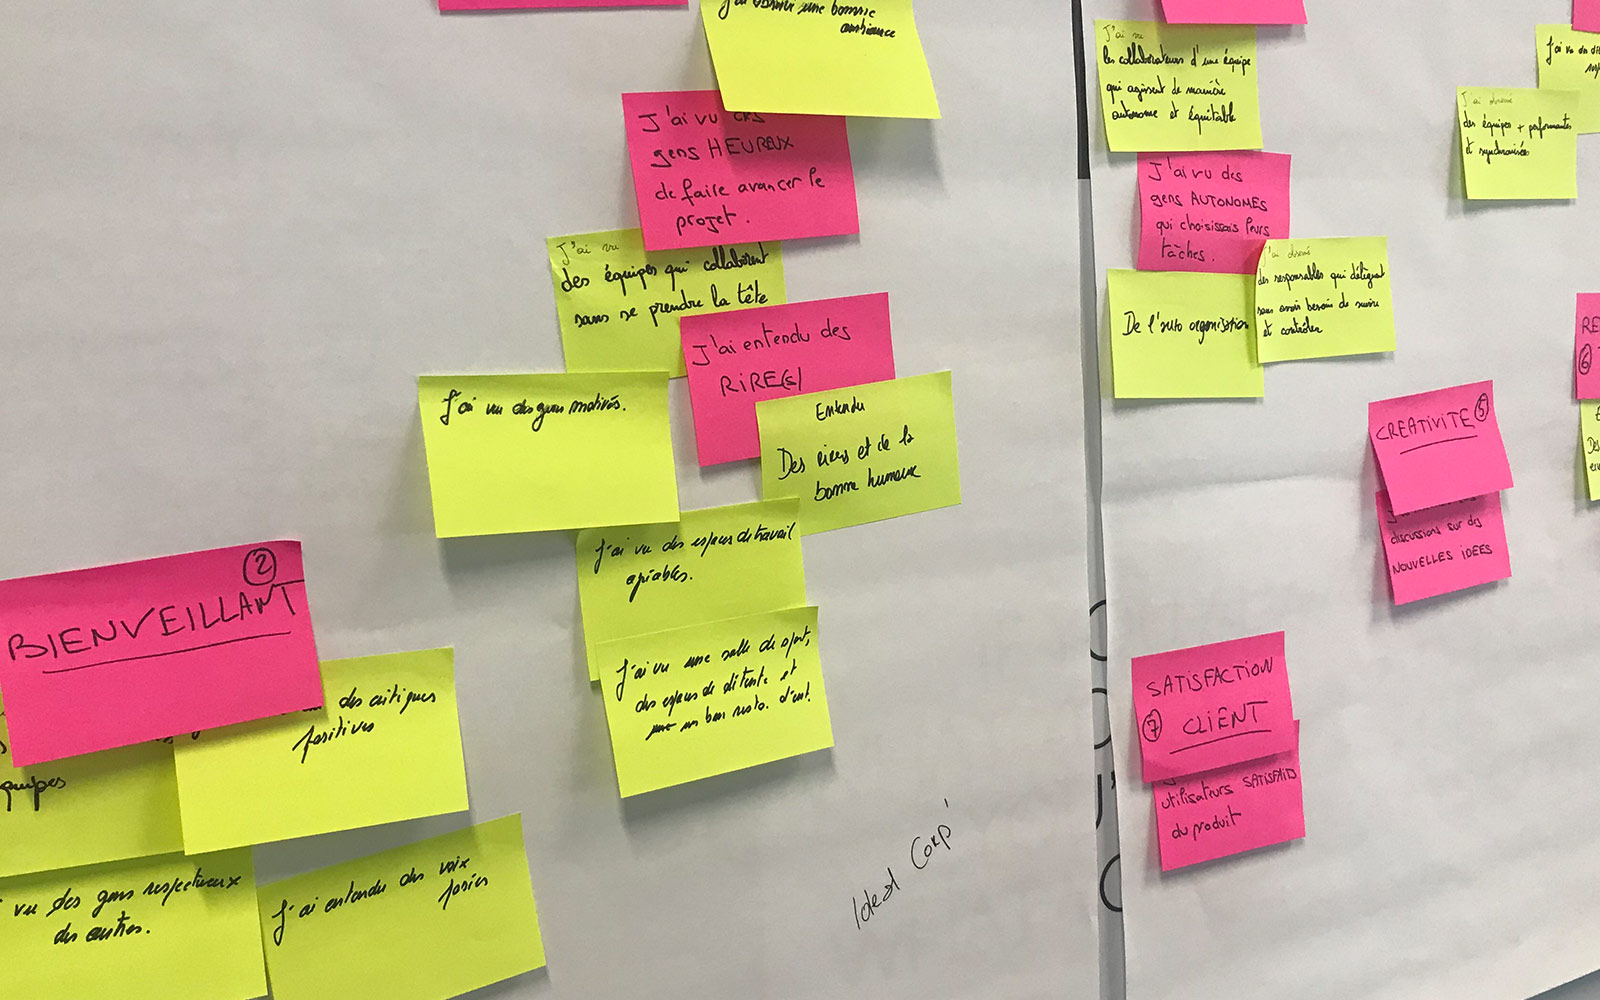 une bonne
ambiance
J'ai vu des
gens HEUREUX
de faire avancer le
projet.
J'ai vu
des équipes qui collaborent
sans se prendre la tête
J'ai entendu des
RIRE(s)
J'ai vu des gens motivés.
Entendu
Des rires et de la
bonne humeur
J'ai vu des espaces de travail
agréables.
J'ai vu une salle de sport,
des espaces de détente et
un bon resto. d'ent.
②
BIENVEILLANT
des critiques
positives
équipes
vu des gens respectueux
des autres.
J'ai entendu des voix
posées
Ideal Corp'
J'ai vu
les collaborateurs d'une équipe
qui agissent de manière
autonome et équitable
J'ai vu des
gens AUTONOMES
qui choisissais leurs
tâches.
De l'auto organisation
J'ai observé
des responsables qui délèguent
sans avoir besoin de suivre
et contrôler
J'ai vu des
J'ai observé
des équipes + performantes
et synchronisées
CREATIVITE ⑤
discussions sur des
NOUVELLES IDEES
SATISFACTION
⑦ CLIENT
utilisateurs SATISFAITS
du produit
RE
⑥